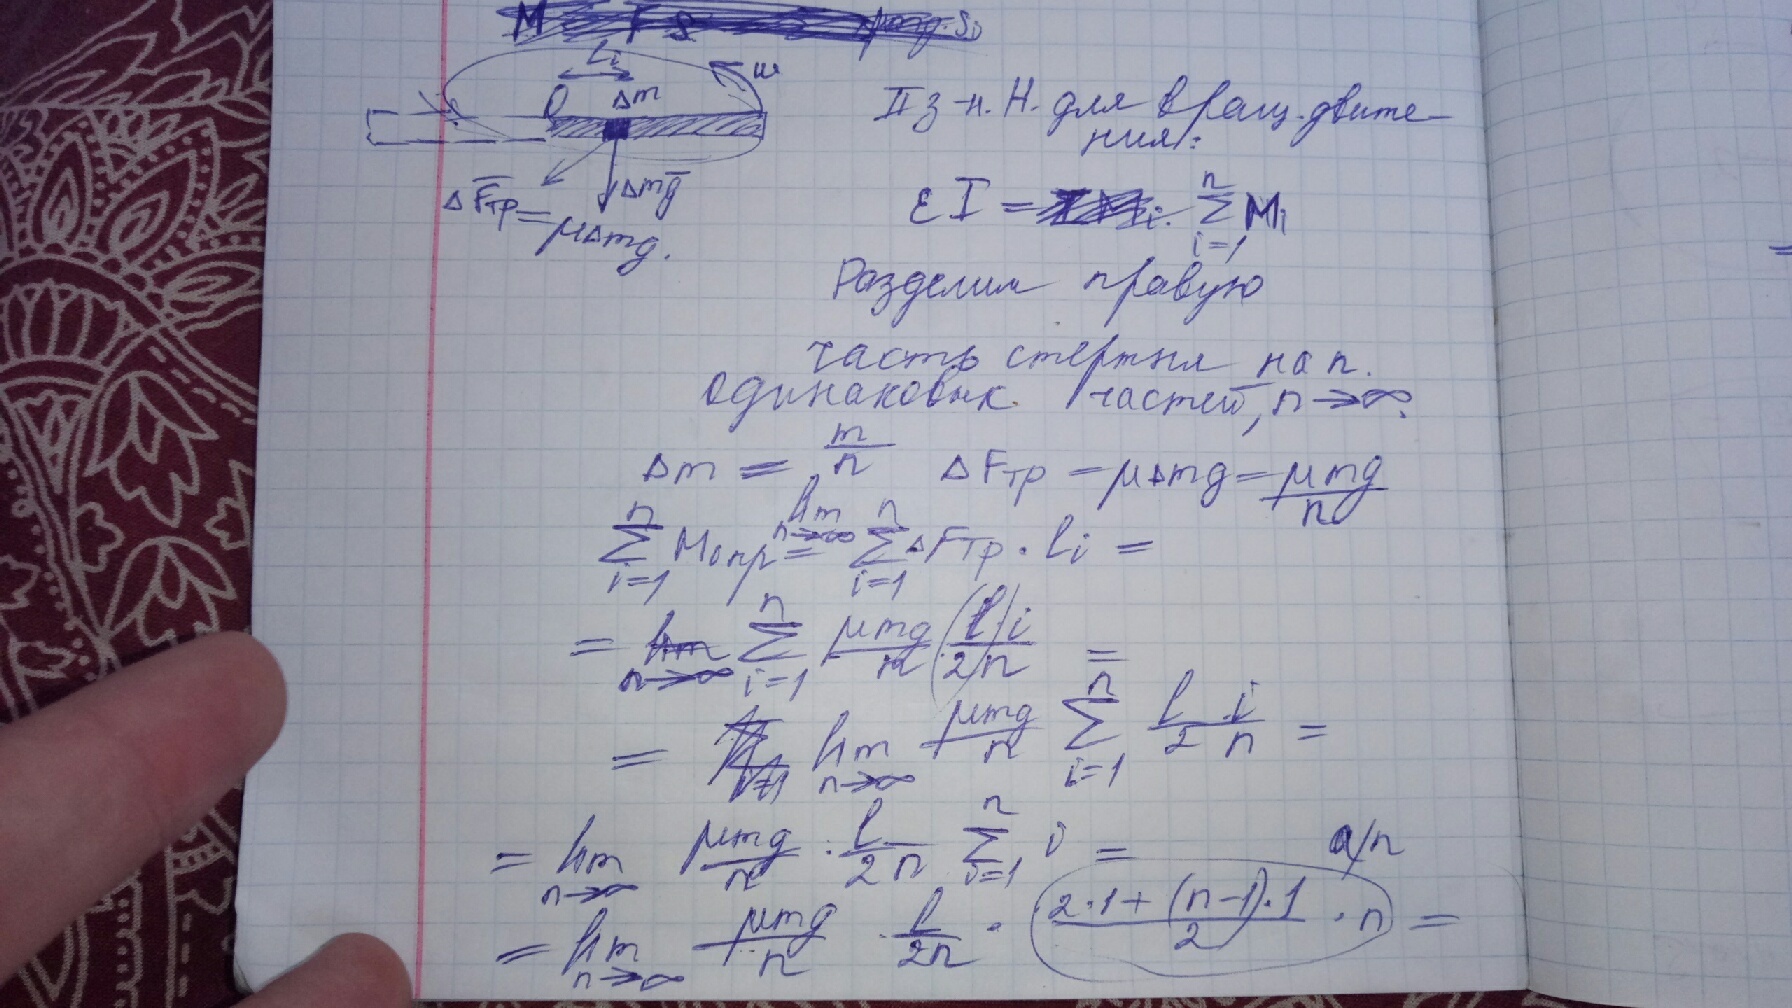 μmg·Si
Li
O Δm ω
ΔFтр = μΔmg.
Δmg
II з-н. Н. для вращ. движе-
ния:
εI = Σ Mi
n
i=1
Разделим правую
часть стержня на n.
одинаковых частей, n→∞.
Δm = m/n ΔFтр = μΔmg = μmg/n
n
Σ Mопр = lim n→∞ Σ ΔFтр · li =
i=1
= lim n→∞ Σ i=1 n μmg/n (l/2) i/n =
= lim n→∞ μmg/n Σ i=1 n l/2 · i/n =
= lim n→∞ μmg/n · l/2n Σ i=1 n i = а/п
= lim n→∞ μmg/n · l/2n · (2·1+(n-1)·1)/2 · n =